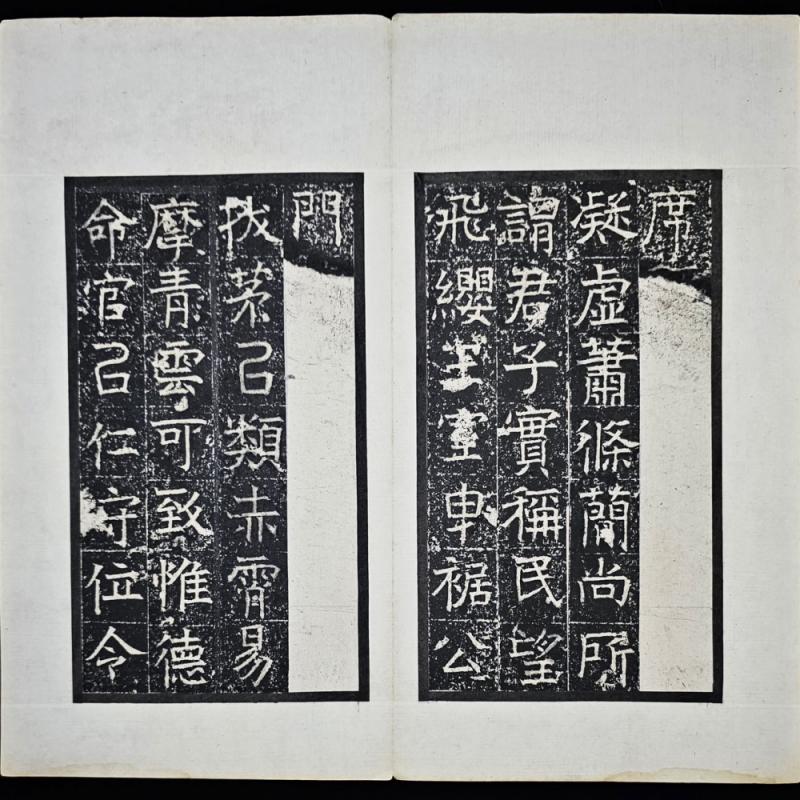 席
凝虛蕭條蕳尚所
謂君子實稱民望
飛纓王室申裾公
門
拔茅㠯類赤霄易
摩青雲可致惟德
命官㠯仁守位令